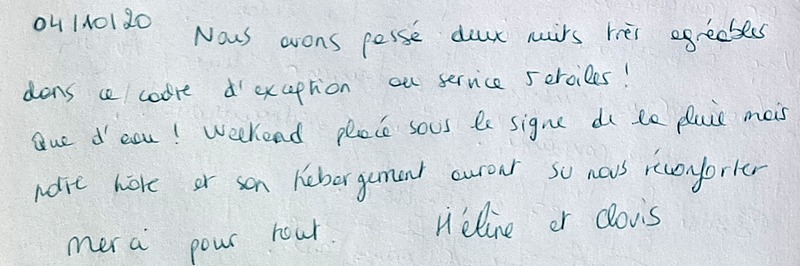 04/10/20 Nous avons passé deux nuits très agréables
dans ce cadre d'exception au service 5 etoiles !
Que d'eau ! Weekend placé sous le signe de la pluie mais
notre hôte et son hébergement auront su nous réconforter
Merci pour tout. Hélène et Clovis